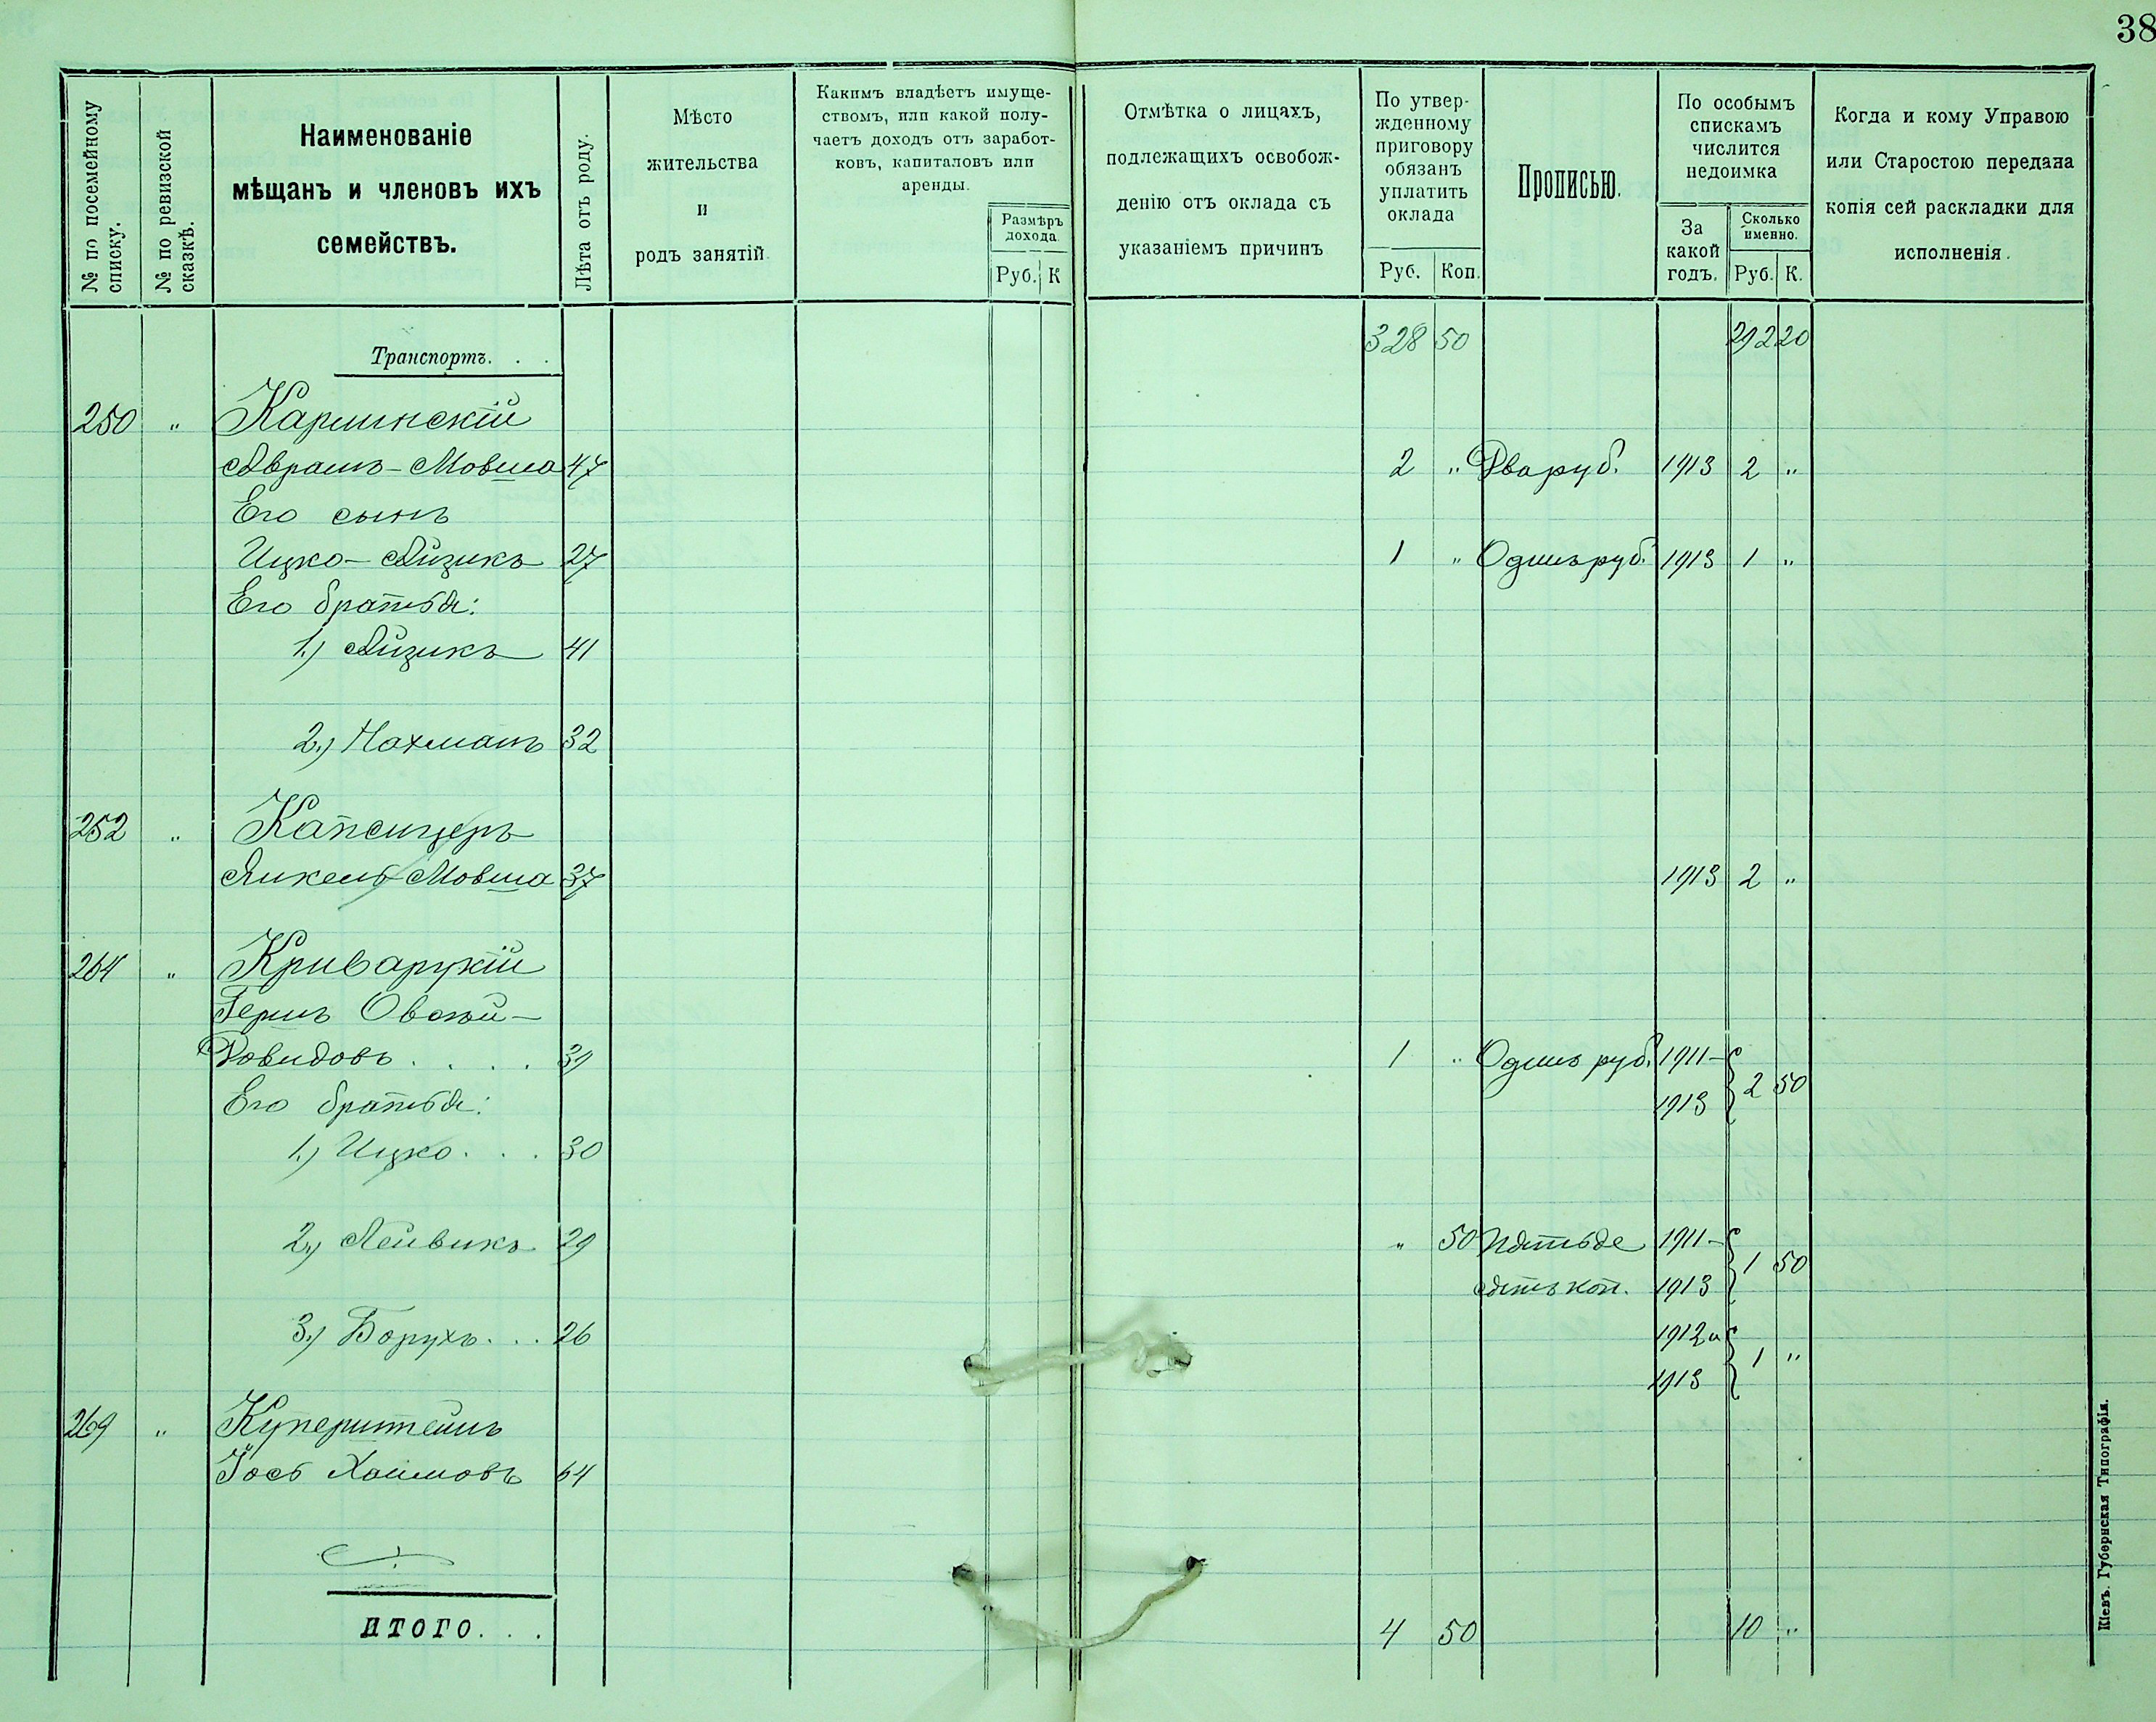 38
№ по посемейному списку.
№ по ревизской сказкѣ.
Наименованіе
мѣщанъ и членовъ ихъ
семействъ.
Лѣта отъ роду.
Мѣсто
жительства
и
родъ занятій.
Какимъ владѣетъ имуще-
ствомъ, или какой полу-
чаетъ доходъ отъ заработ-
ковъ, капиталовъ или
аренды.
Размѣръ
дохода.
Руб. К
Отмѣтка о лицахъ,
подлежащихъ освобож-
денію отъ оклада съ
указаніемъ причинъ
По утвер-
жденному
приговору
обязанъ
уплатить
оклада
Руб. Коп.
Прописью.
По особымъ
спискамъ
числится
недоимка
За
какой
годъ.
Сколько
именно.
Руб. К.
Когда и кому Управою
или Старостою передана
копія сей раскладки для
исполненія.
Транспортъ. . . 328 50 292 20
250 " Карлинскій
Аврамъ-Мовша 47 2 " Два руб. 1913 2 "
Его сынъ
Ицко-Айзикъ 27 1 " Одинъ руб. 1913 1 "
Его братья:
1.) Айзикъ 41
2.) Нахманъ 32
252 " Капсицеръ
Янкель-Мовша 37 1913 2 "
264 " Криварукій
Гершъ Овсѣй-
Довидовъ . . . . 39 1 " Одинъ руб. 1911-
1913 2 50
Его братья:
1.) Ицко. . . 30
2.) Лейвикъ 29 " 50 Пятьде 1911-
сятъ коп. 1913 1 50
3.) Борухъ. . . 26 1912 и
1913 1 "
269 " Куперштейнъ
Іось Хаимовъ 64
ИТОГО. . . 4 50 10 "
Кіевъ. Губернская Типографія.